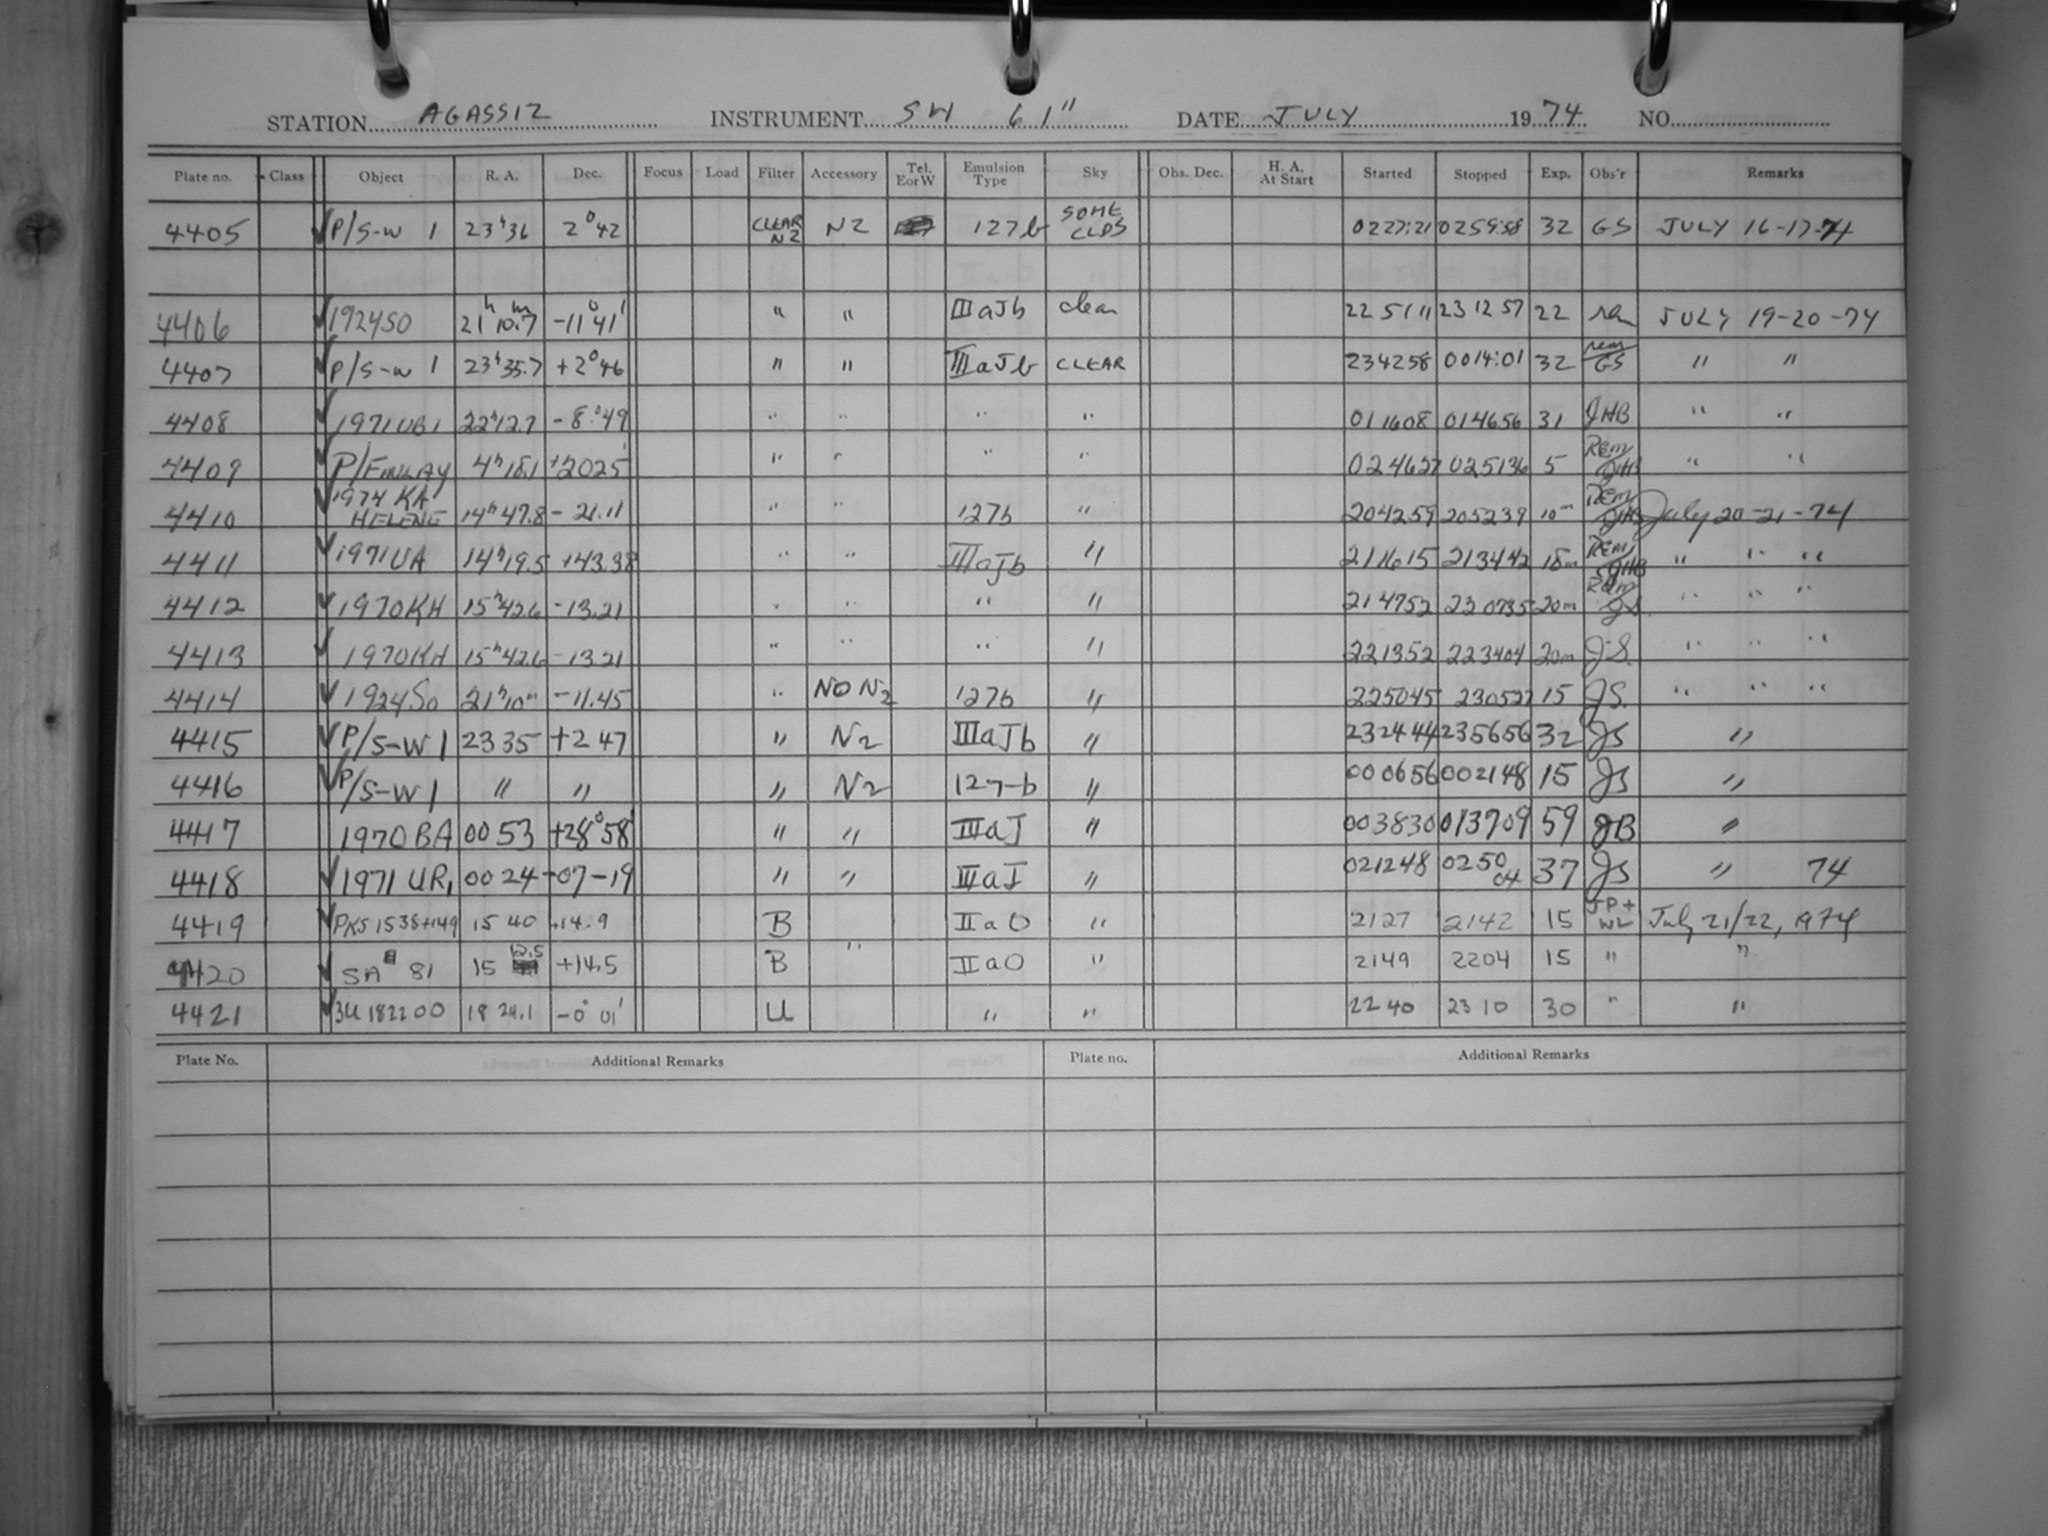 STATION AGASSIZ INSTRUMENT SW 61" DATE JULY 1974 NO.
Plate no. Class Object R. A. Dec. Focus Load Filter Accessory Tel. E or W Emulsion Type Sky Obs. Dec. H. A. At Start Started Stopped Exp. Obs'r Remarks
4405 ✓ P/S-W 1 23h36 2°42 CLEAR N2 N2 127b SOME CLDS 0227:21 0259:58 32 GS JULY 16-17-74
4406 ✓ 1924SO 21h10.m7 -11°41' " " IIIaJb clear 225111 231257 22 rem JULY 19-20-74
4407 ✓ P/S-W 1 23h35.7 +2°46 " " IIIaJb CLEAR 234258 0014:01 32 rem/GS " "
4408 ✓ 1971UB1 22h12.7 -8°49 " " " " 011608 014656 31 JHB " "
4409 ✓ P/FINLAY 4h18.1 +2025 " " " " 024627 025136 5 REM/JHB " "
4410 ✓ 1974 KA HELENE 14h47.8 -21.11 " " 127b " 204259 205239 10m REM/JHB July 20-21-74
4411 ✓ 1971UA 14h19.5 +43.38 " " IIIaJb " 211615 213442 18m REM/JHB " " "
4412 ✓ 1970KH 15h42.6 -13.21 " " " " 214752 220735 20m REM/JS " " "
4413 ✓ 1970KH 15h42.6 -13.21 " " " " 221352 223404 20m J.S. " " "
4414 ✓ 1924SO 21h10m -11.45 " NO N2 127b " 225045 230527 15 JS. " " "
4415 ✓ P/S-W 1 23 35 +2 47 " N2 IIIaJb " 232444 235656 32 JS "
4416 ✓ P/S-W 1 " " " N2 127-b " 000656 002148 15 JS "
4417 1970BA 00 53 +28°58' " " IIIaJ " 003830 013709 59 JB "
4418 ✓ 1971 UR1 00 24 -07-19 " " IIIaJ " 021248 025004 37 JS " 74
4419 ✓ PKS 1538+149 15 40 +14.9 B " IIaO " 2127 2142 15 JP+WL July 21/22, 1974
4420 ✓ SA 81 15 12.5 +14.5 B IIaO " 2149 2204 15 " "
4421 ✓ 3U 182200 18 24.1 -0°01' U " " 2240 2310 30 " "
Plate No. Additional Remarks Plate no. Additional Remarks